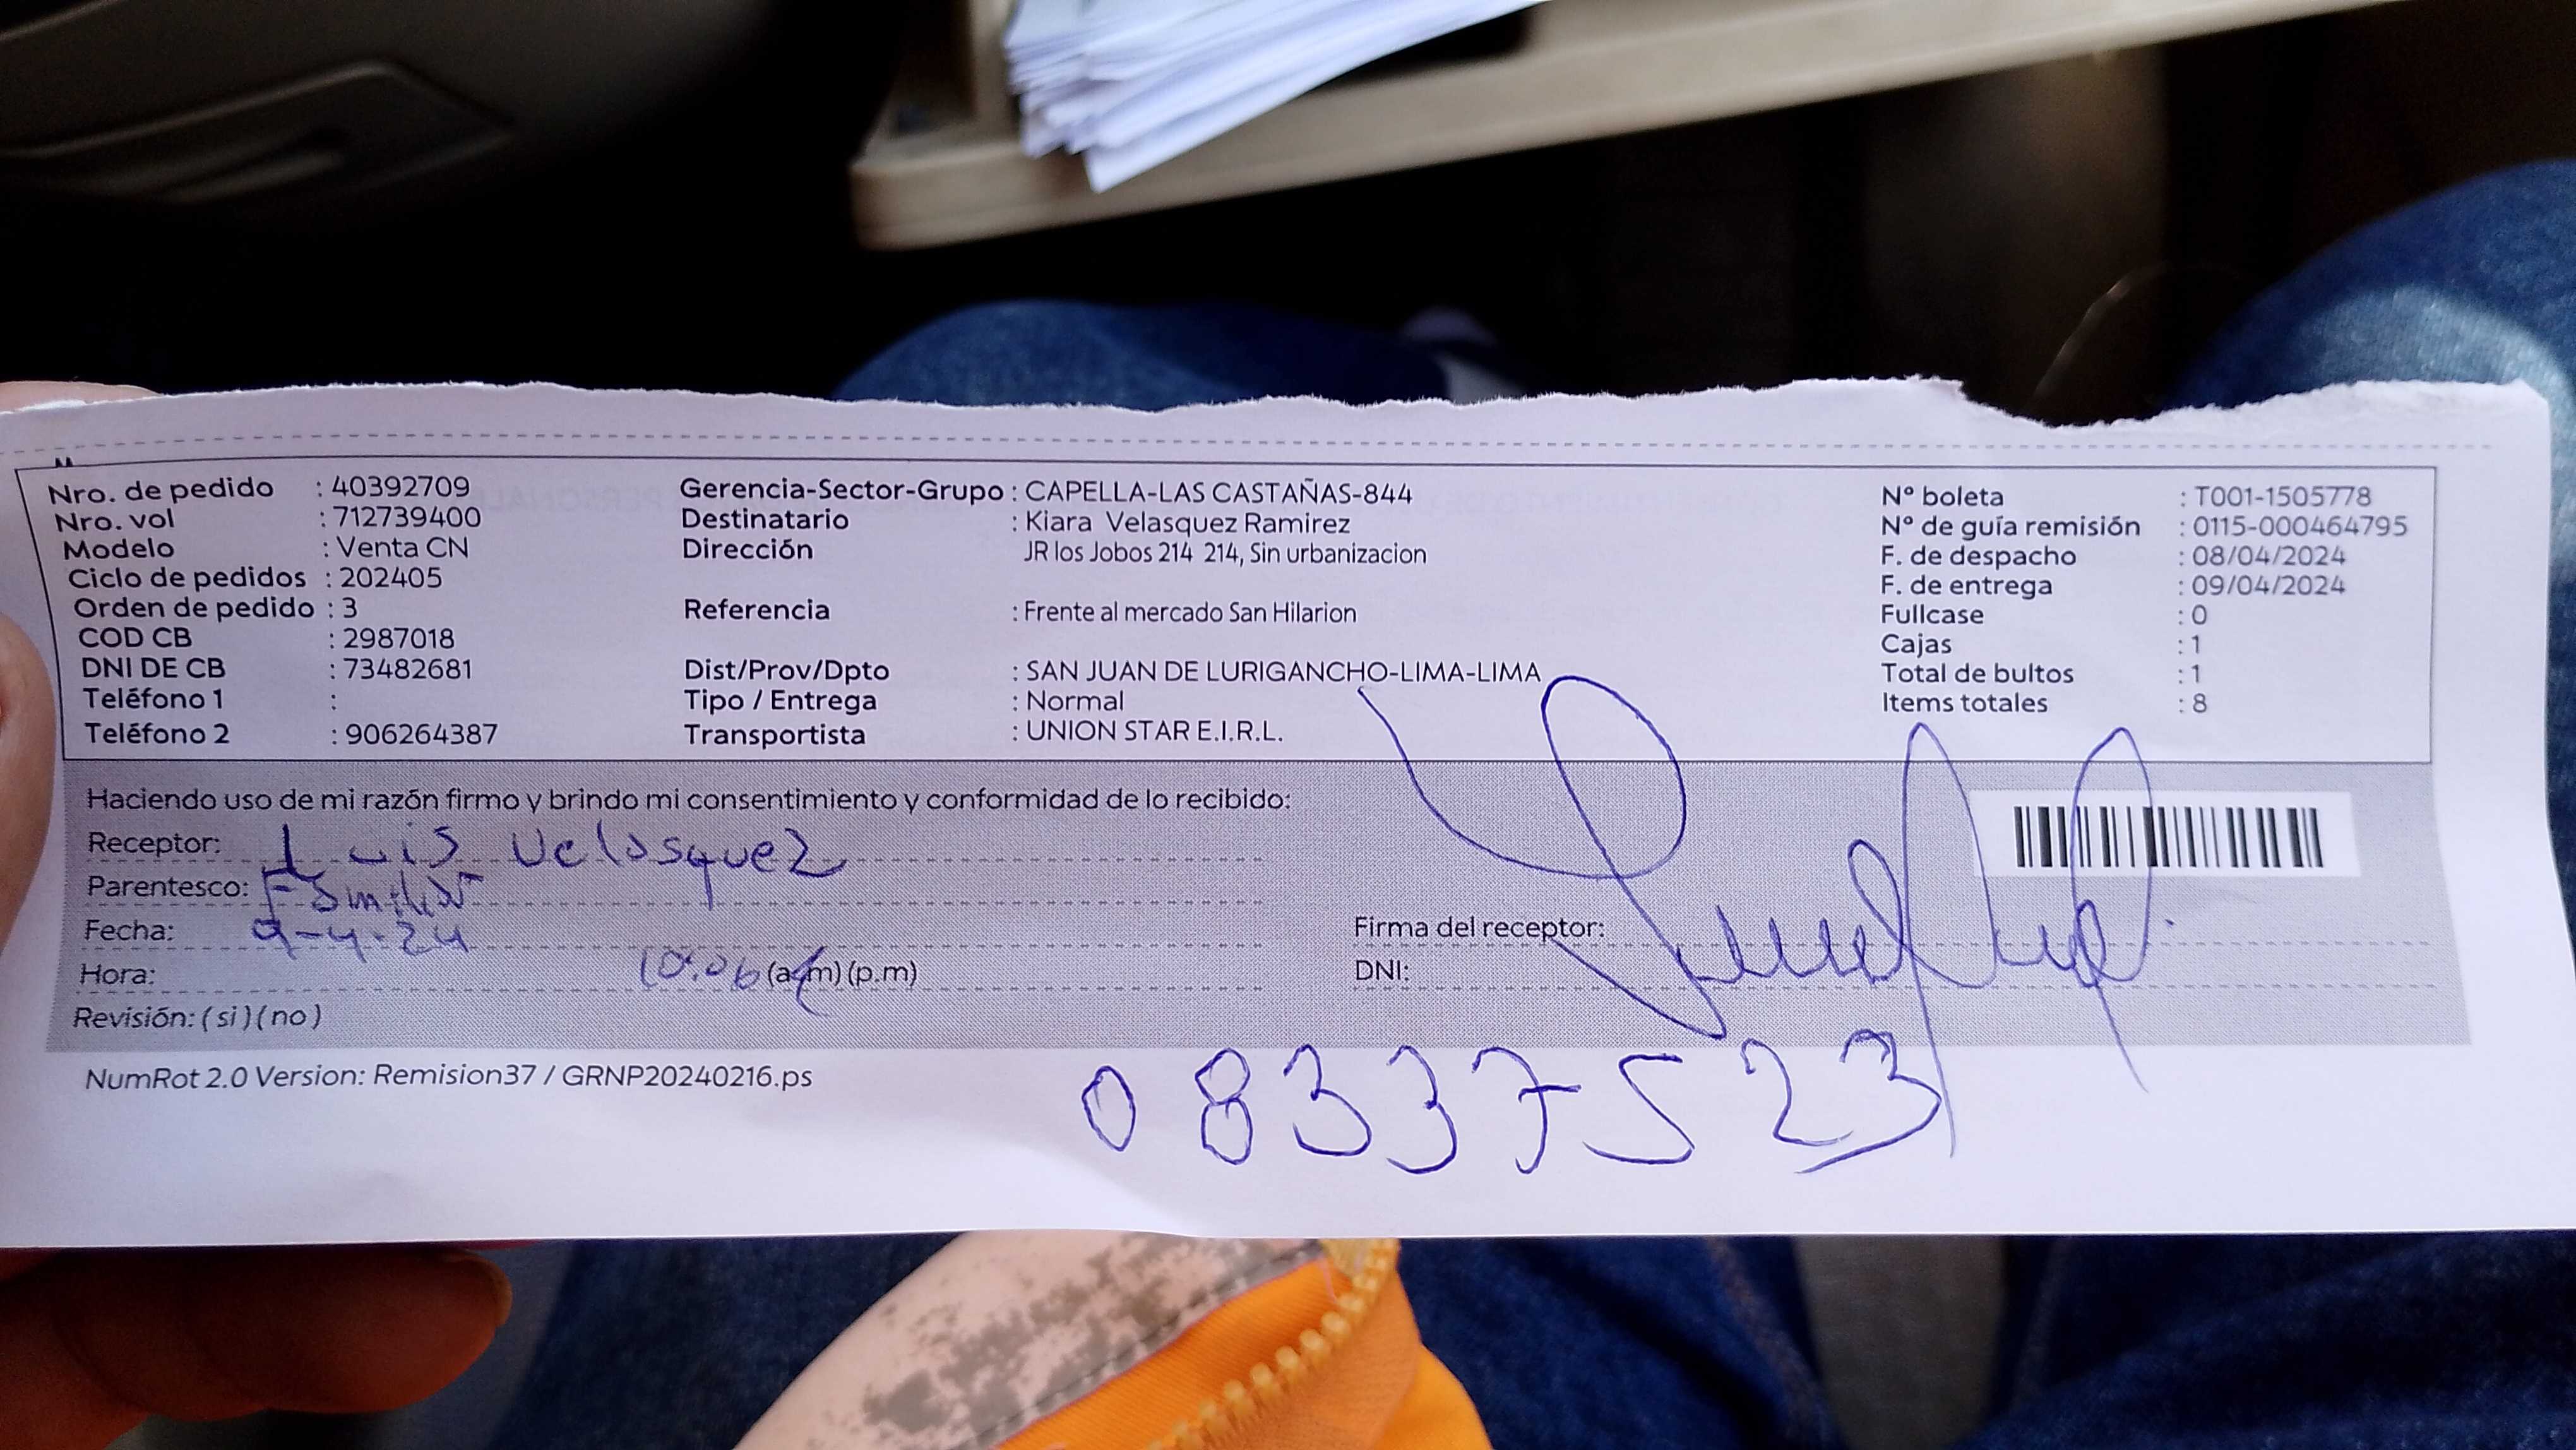 Nro. de pedido : 40392709
Nro. vol : 712739400
Modelo : Venta CN
Ciclo de pedidos : 202405
Orden de pedido : 3
COD CB : 2987018
DNI DE CB : 73482681
Teléfono 1 :
Teléfono 2 : 906264387
Gerencia-Sector-Grupo : CAPELLA-LAS CASTAÑAS-844
Destinatario : Kiara Velasquez Ramirez
Dirección JR los Jobos 214 214, Sin urbanizacion
Referencia : Frente al mercado San Hilarion
Dist/Prov/Dpto : SAN JUAN DE LURIGANCHO-LIMA-LIMA
Tipo / Entrega : Normal
Transportista : UNION STAR E.I.R.L.
N° boleta : T001-1505778
N° de guía remisión : 0115-000464795
F. de despacho : 08/04/2024
F. de entrega : 09/04/2024
Fullcase : 0
Cajas : 1
Total de bultos : 1
Items totales : 8
Haciendo uso de mi razón firmo y brindo mi consentimiento y conformidad de lo recibido:
Receptor: Luis Velasquez
Parentesco: Familiar
Fecha: 9-4-24
Hora: 10:06 (a.m) (p.m)
Revisión: ( si ) ( no )
Firma del receptor:
DNI:
08337523
NumRot 2.0 Version: Remision37 / GRNP20240216.ps